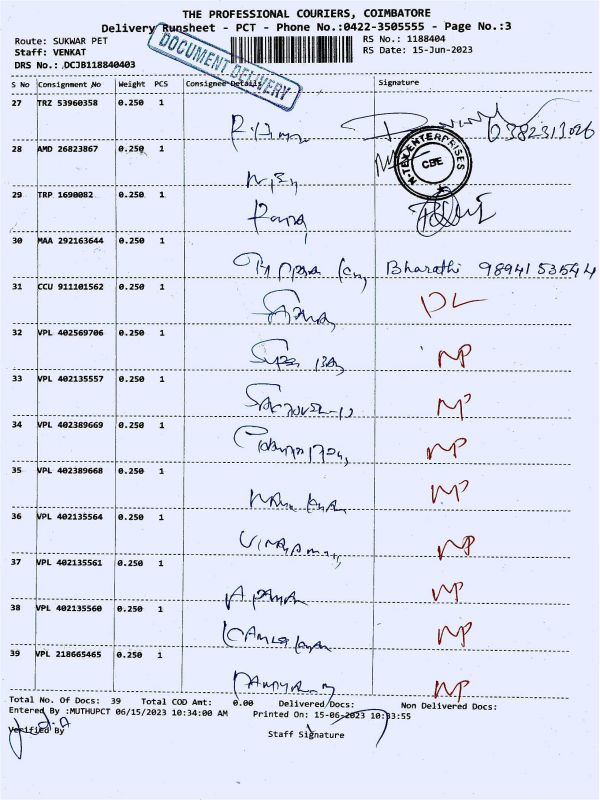 THE PROFESSIONAL COURIERS, COIMBATORE
Delivery Runsheet - PCT - Phone No.:0422-3505555 - Page No.:3
Route: SUKWAR PET
RS No.: 1188404
Staff: VENKAT
RS Date: 15-Jun-2023
DRS No.: DCJB118840403
DOCUMENT DELIVERY
S No Consignment No Weight PCS Consignee Details Signature
27 TRZ 53960358 0.250 1
28 AMD 26823867 0.250 1
N-TEX ENTERPRISES CBE
29 TRP 1690082 0.250 1
30 MAA 292163644 0.250 1 Bharathi 98941 53544
31 CCU 911101562 0.250 1 DL
32 VPL 402569706 0.250 1 NP
33 VPL 402135557 0.250 1 NP
34 VPL 402389669 0.250 1 NP
35 VPL 402389668 0.250 1 NP
36 VPL 402135564 0.250 1 NP
37 VPL 402135561 0.250 1 NP
38 VPL 402135560 0.250 1 NP
39 VPL 218665465 0.250 1 NP
Total No. Of Docs: 39 Total COD Amt: 0.00 Delivered Docs: Non Delivered Docs:
Entered By :MUTHUPCT 06/15/2023 10:34:00 AM Printed On: 15-06-2023 10:33:55
Verified By
Staff Signature